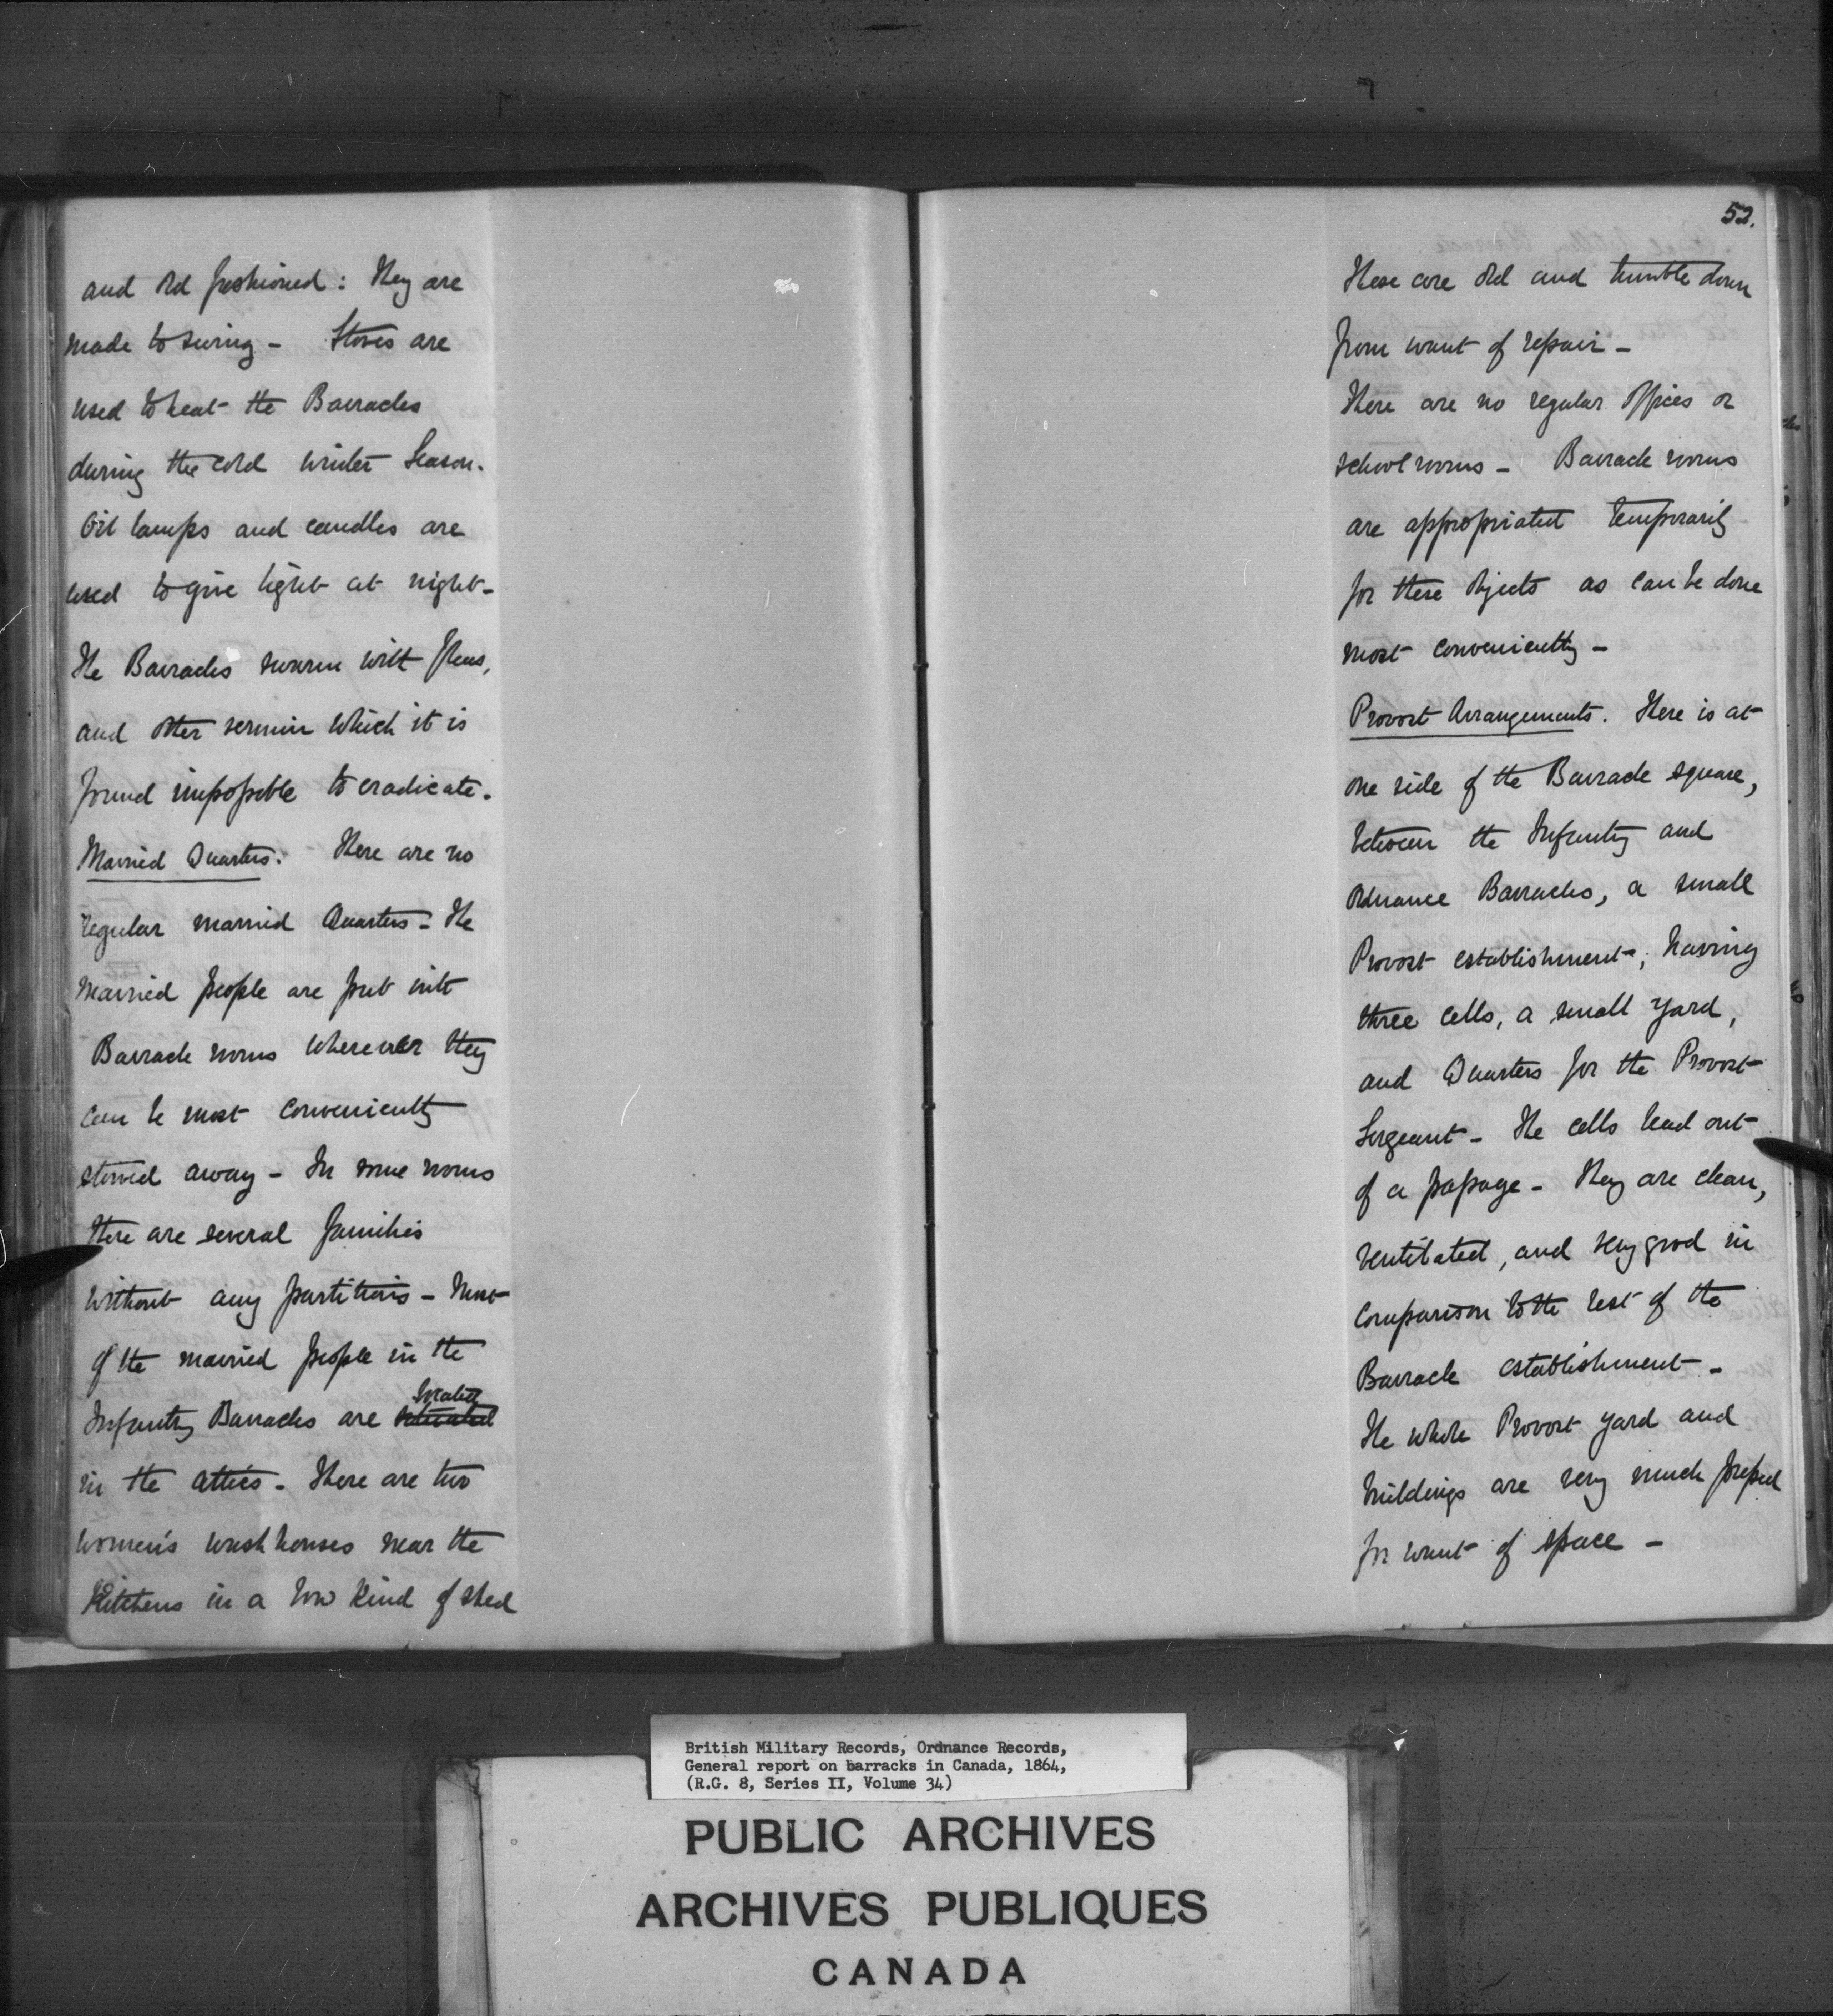 and old fashioned: They are
made to swing - Stoves are
used to heat the Barracks
during the cold winter Season.
Oil lamps and candles are
used to give light at night -
The Barracks swarm with fleas,
and other vermin which it is
found impossible to eradicate.
Married Quarters. There are no
regular married Quarters - The
married people are put into
Barrack rooms wherever they
can be most conveniently
stowed away - In some rooms
there are several families
without any partitions - Most
of the married people in the
located
Infantry Barracks are situated
in the attics - There are two
women's wash houses near the
Kitchens in a low kind of shed
52.
These are old and tumble down
from want of repair -
There are no regular offices or
school rooms - Barrack rooms
are appropriated temporarily
for these objects as can be done
most conveniently -
Provost Arrangements. There is at
one side of the Barrack square,
between the Infantry and
Ordnance Barracks, a small
Provost establishment, having
three cells, a small yard,
and Quarters for the Provost
Sergeant - The cells lead out
of a passage - They are clean,
ventilated, and very good in
comparison to the rest of the
Barrack establishment -
The whole Provost yard and
buildings are very much pressed
for want of space -
British Military Records, Ordnance Records,
General report on barracks in Canada, 1864,
(R.G. 8, Series II, Volume 34)
PUBLIC ARCHIVES
ARCHIVES PUBLIQUES
CANADA